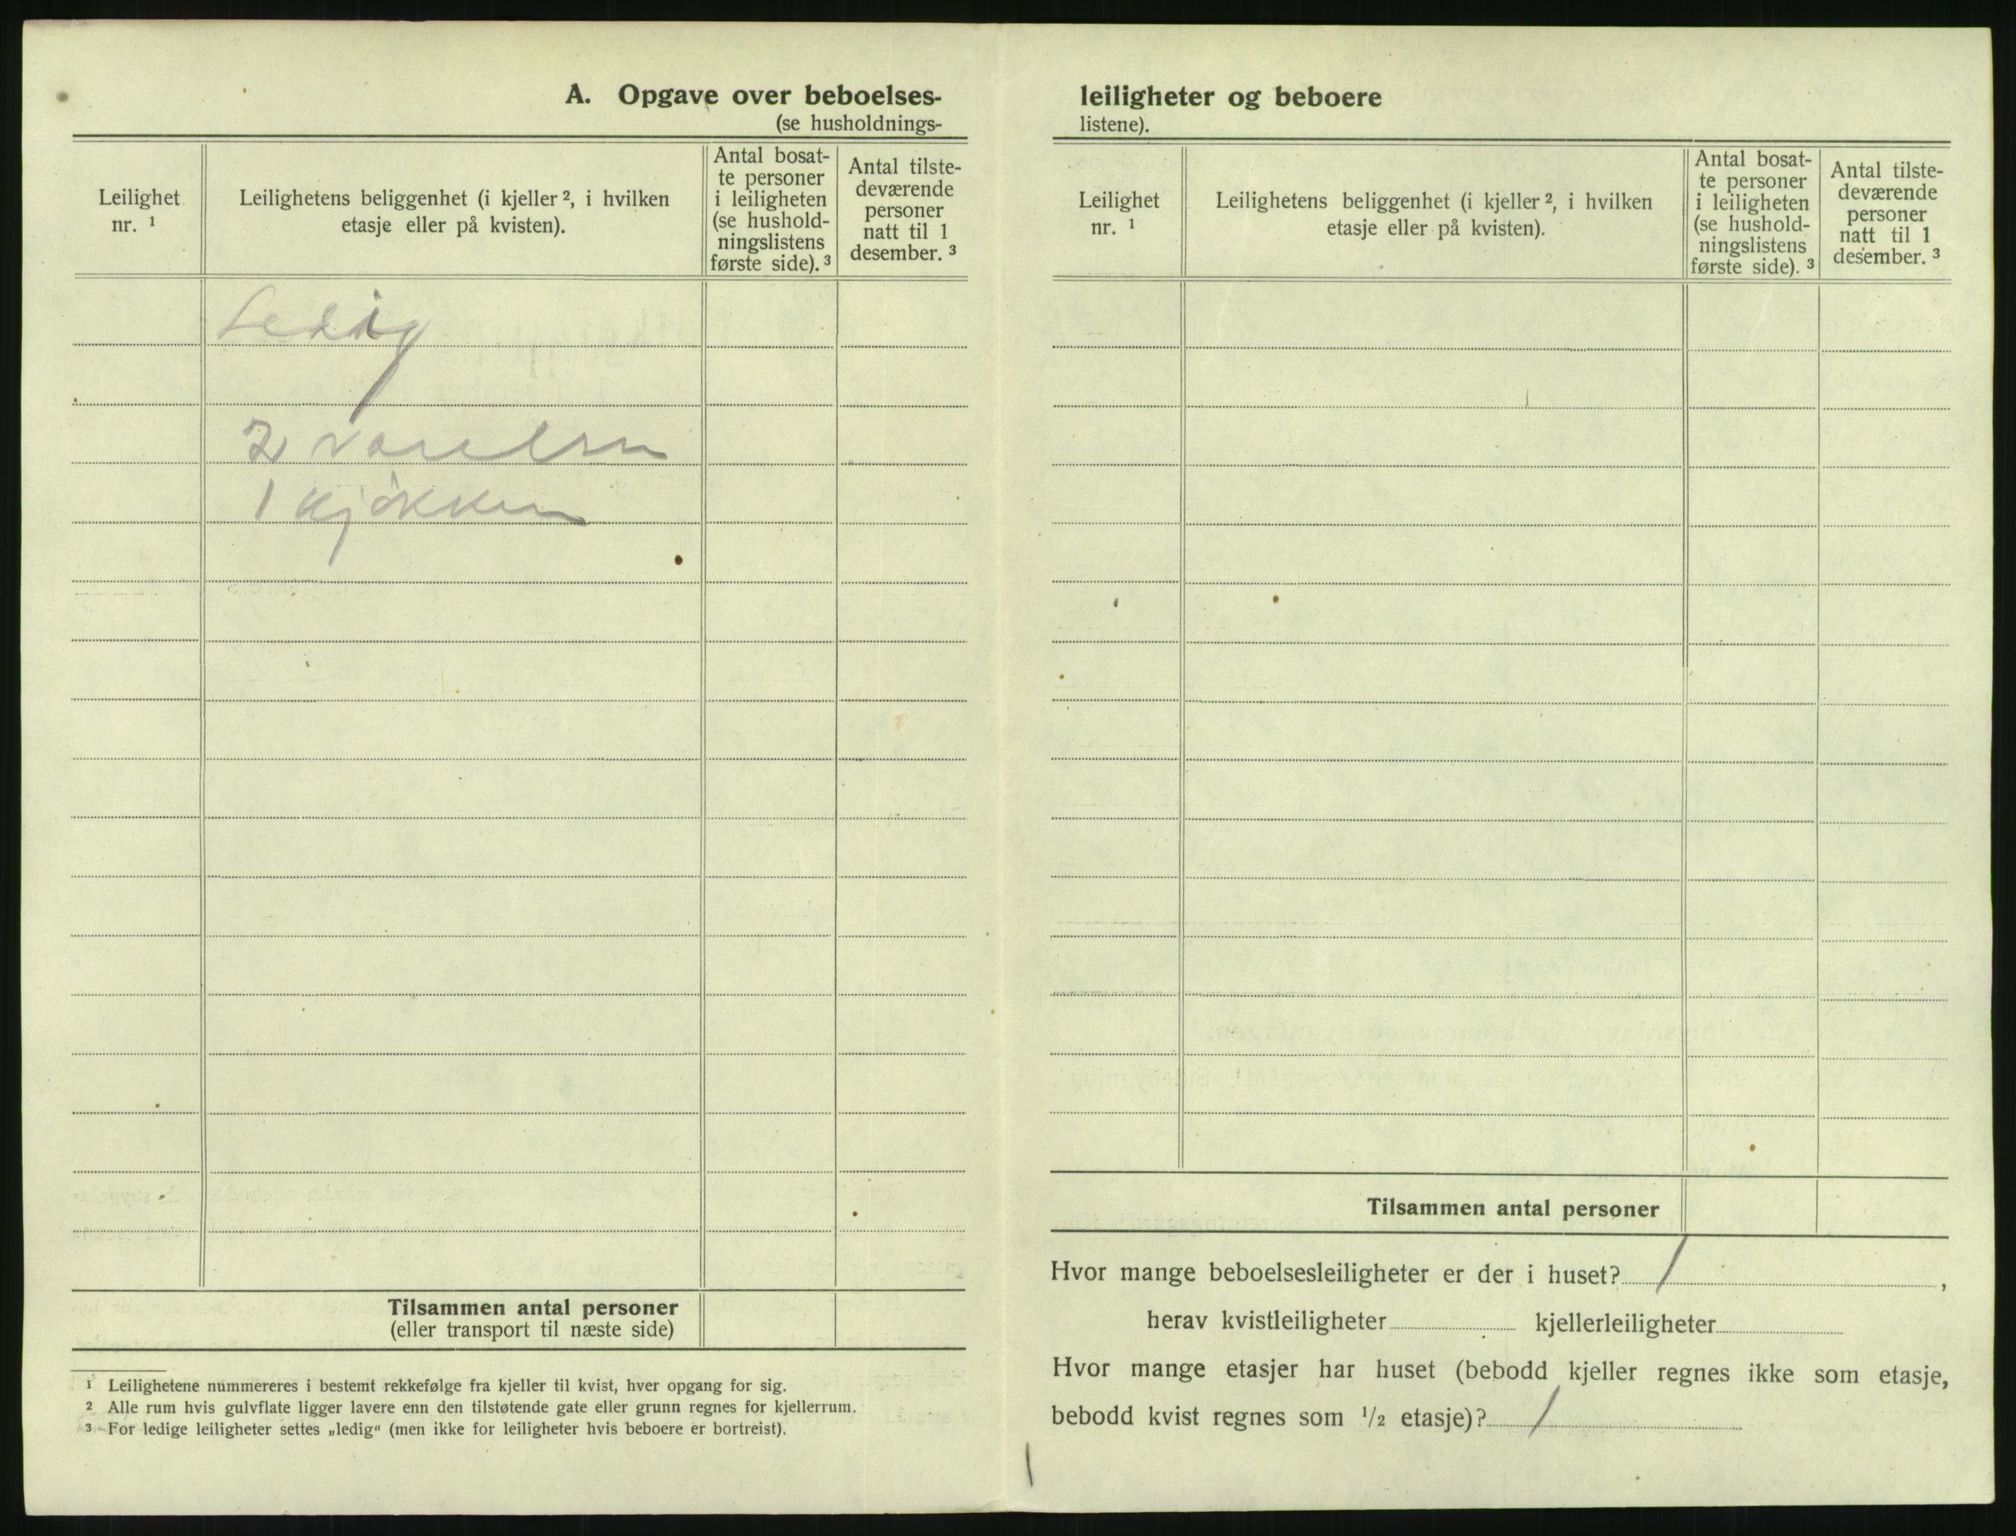 A. Opgave over beboelses-
(se husholdnings-
Leilighet
nr. ¹
Leilighetens beliggenhet (i kjeller ², i hvilken
etasje eller på kvisten).
Antal bosat-
te personer
i leiligheten
(se hushold-
ningslistens
første side). ³
Antal tilste-
deværende
personer
natt til 1
desember. ³
Ledig
2 værelsen
1 kjøkken
Tilsammen antal personer
(eller transport til næste side)
¹ Leilighetene nummereres i bestemt rekkefølge fra kjeller til kvist, hver opgang for sig.
² Alle rum hvis gulvflate ligger lavere enn den tilstøtende gate eller grunn regnes for kjellerrum.
³ For ledige leiligheter settes „ledig“ (men ikke for leiligheter hvis beboere er bortreist).
leiligheter og beboere
listene).
Leilighet
nr. ¹
Leilighetens beliggenhet (i kjeller ², i hvilken
etasje eller på kvisten).
Antal bosat-
te personer
i leiligheten
(se hushold-
ningslistens
første side). ³
Antal tilste-
deværende
personer
natt til 1
desember. ³
Tilsammen antal personer
Hvor mange beboelsesleiligheter er der i huset? 1,
herav kvistleiligheter kjellerleiligheter
Hvor mange etasjer har huset (bebodd kjeller regnes ikke som etasje,
bebodd kvist regnes som ½ etasje)? 1